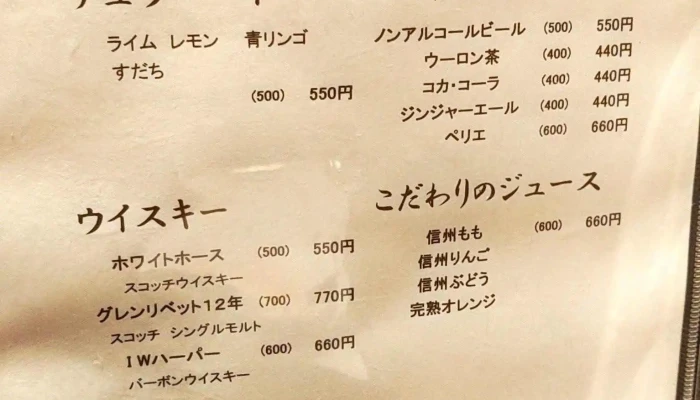 ライム レモン 青リンゴ
すだち
(500) 550円
ウイスキー
ホワイトホース (500) 550円
スコッチウイスキー
グレンリベット12年 (700) 770円
スコッチ シングルモルト
IWハーパー (600) 660円
バーボンウイスキー
ノンアルコールビール (500) 550円
ウーロン茶 (400) 440円
コカ・コーラ (400) 440円
ジンジャーエール (400) 440円
ペリエ (600) 660円
こだわりのジュース
信州もも (600) 660円
信州りんご
信州ぶどう
完熟オレンジ